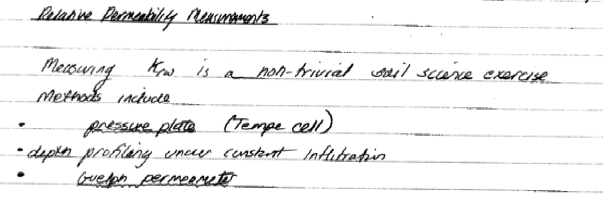 Relative Permeability Measurements
Measuring Krw is a non-trivial soil science exercise
Methods include
• pressure plate (Tempe cell)
• depth profiling under constant infiltration
• Guelph permeameter